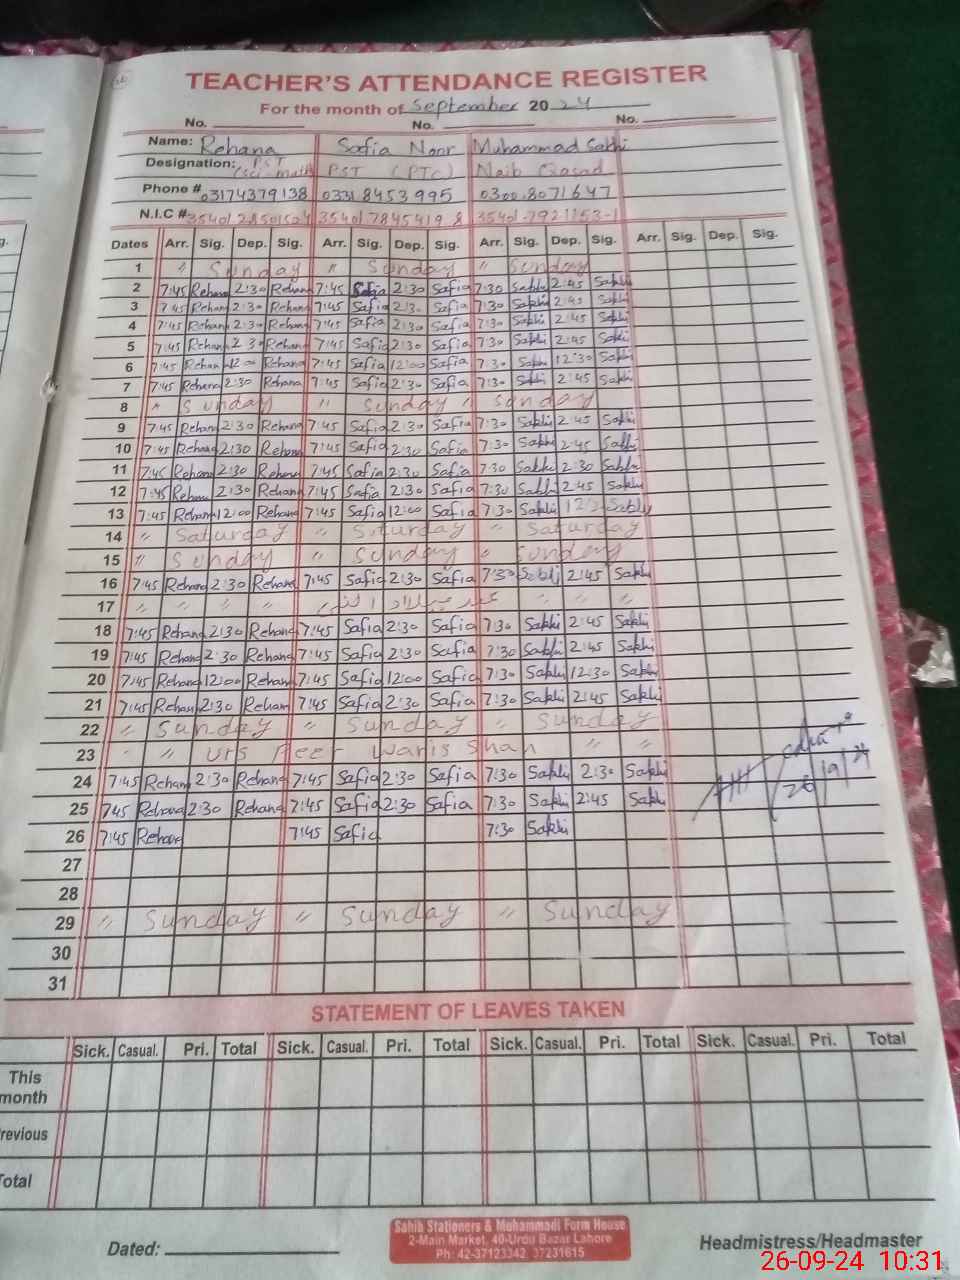 TEACHER'S ATTENDANCE REGISTER
For the month of September 2024
No. No. No.
Name: Rehana Safia Noor Muhammad Sakhi
Designation: PST (Sci-math) PST (PTC) Naib Qasad
Phone # 03174379138 03318453995 0300.8071647
N.I.C # 35401
Dates Arr. Sig. Dep. Sig. Arr. Sig. Dep. Sig. Arr. Sig. Dep. Sig. Arr. Sig. Dep. Sig.
1 " Sunday " Sunday " Sunday
2 7:45 Rehana 2:30 Rehana 7:45 Safia 2:30 Safia 7:30 Sakhi 2:45 Sakhi
3 7:45 Rehana 2:30 Rehana 7:45 Safia 2:30 Safia 7:30 Sakhi 2:45 Sakhi
4 7:45 Rehana 2:30 Rehana 7:45 Safia 2:30 Safia 7:30 Sakhi 2:45 Sakhi
5 7:45 Rehana 2:30 Rehana 7:45 Safia 2:30 Safia 7:30 Sakhi 2:45 Sakhi
6 7:45 Rehana 12:00 Rehana 7:45 Safia 12:00 Safia 7:30 Sakhi 12:30 Sakhi
7 7:45 Rehana 2:30 Rehana 7:45 Safia 2:30 Safia 7:30 Sakhi 2:45 Sakhi
8 " Sunday " Sunday " Sunday
9 7:45 Rehana 2:30 Rehana 7:45 Safia 2:30 Safia 7:30 Sakhi 2:45 Sakhi
10 7:45 Rehana 2:30 Rehana 7:45 Safia 2:30 Safia 7:30 Sakhi 2:45 Sakhi
11 7:45 Rehana 2:30 Rehana 7:45 Safia 2:30 Safia 7:30 Sakhi 2:30 Sakhi
12 7:45 Rehana 2:30 Rehana 7:45 Safia 2:30 Safia 7:30 Sakhi 2:45 Sakhi
13 7:45 Rehana 12:00 Rehana 7:45 Safia 12:00 Safia 7:30 Sakhi Sakhi
14 " Saturday " Saturday " Saturday
15 " Sunday " Sunday " Sunday
16 7:45 Rehana 2:30 Rehana 7:45 Safia 2:30 Safia 7:30 Sakhi 2:45 Sakhi
17 " " " " عید میلاد النبی " " "
18 7:45 Rehana 2:30 Rehana 7:45 Safia 2:30 Safia 7:30 Sakhi 2:45 Sakhi
19 7:45 Rehana 2:30 Rehana 7:45 Safia 2:30 Safia 7:30 Sakhi 2:45 Sakhi
20 7:45 Rehana 12:00 Rehana 7:45 Safia 12:00 Safia 7:30 Sakhi 12:30 Sakhi
21 7:45 Rehana 2:30 Rehana 7:45 Safia 2:30 Safia 7:30 Sakhi 2:45 Sakhi
22 " Sunday " Sunday " Sunday
23 " " Urs Peer Waris Shah " "
24 7:45 Rehana 2:30 Rehana 7:45 Safia 2:30 Safia 7:30 Sakhi 2:30 Sakhi
25 7:45 Rehana 2:30 Rehana 7:45 Safia 2:30 Safia 7:30 Sakhi 2:45 Sakhi
26/9/24
26 7:45 Rehana 7:45 Safia 7:30 Sakhi
27
28
29 " Sunday " Sunday " Sunday
30
31
STATEMENT OF LEAVES TAKEN
Sick. Casual. Pri. Total Sick. Casual. Pri. Total Sick. Casual. Pri. Total Sick. Casual. Pri. Total
This
month
revious
otal
Sahib Stationers & Mohammadi Form House
2-Main Market, 40-Urdu Bazar Lahore
Ph: 42-37123342, 37231615
Dated: Headmistress/Headmaster
26-09-24 10:31